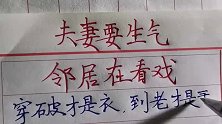 夫妻要生气
邻居在看戏
穿破才是衣,到老才是